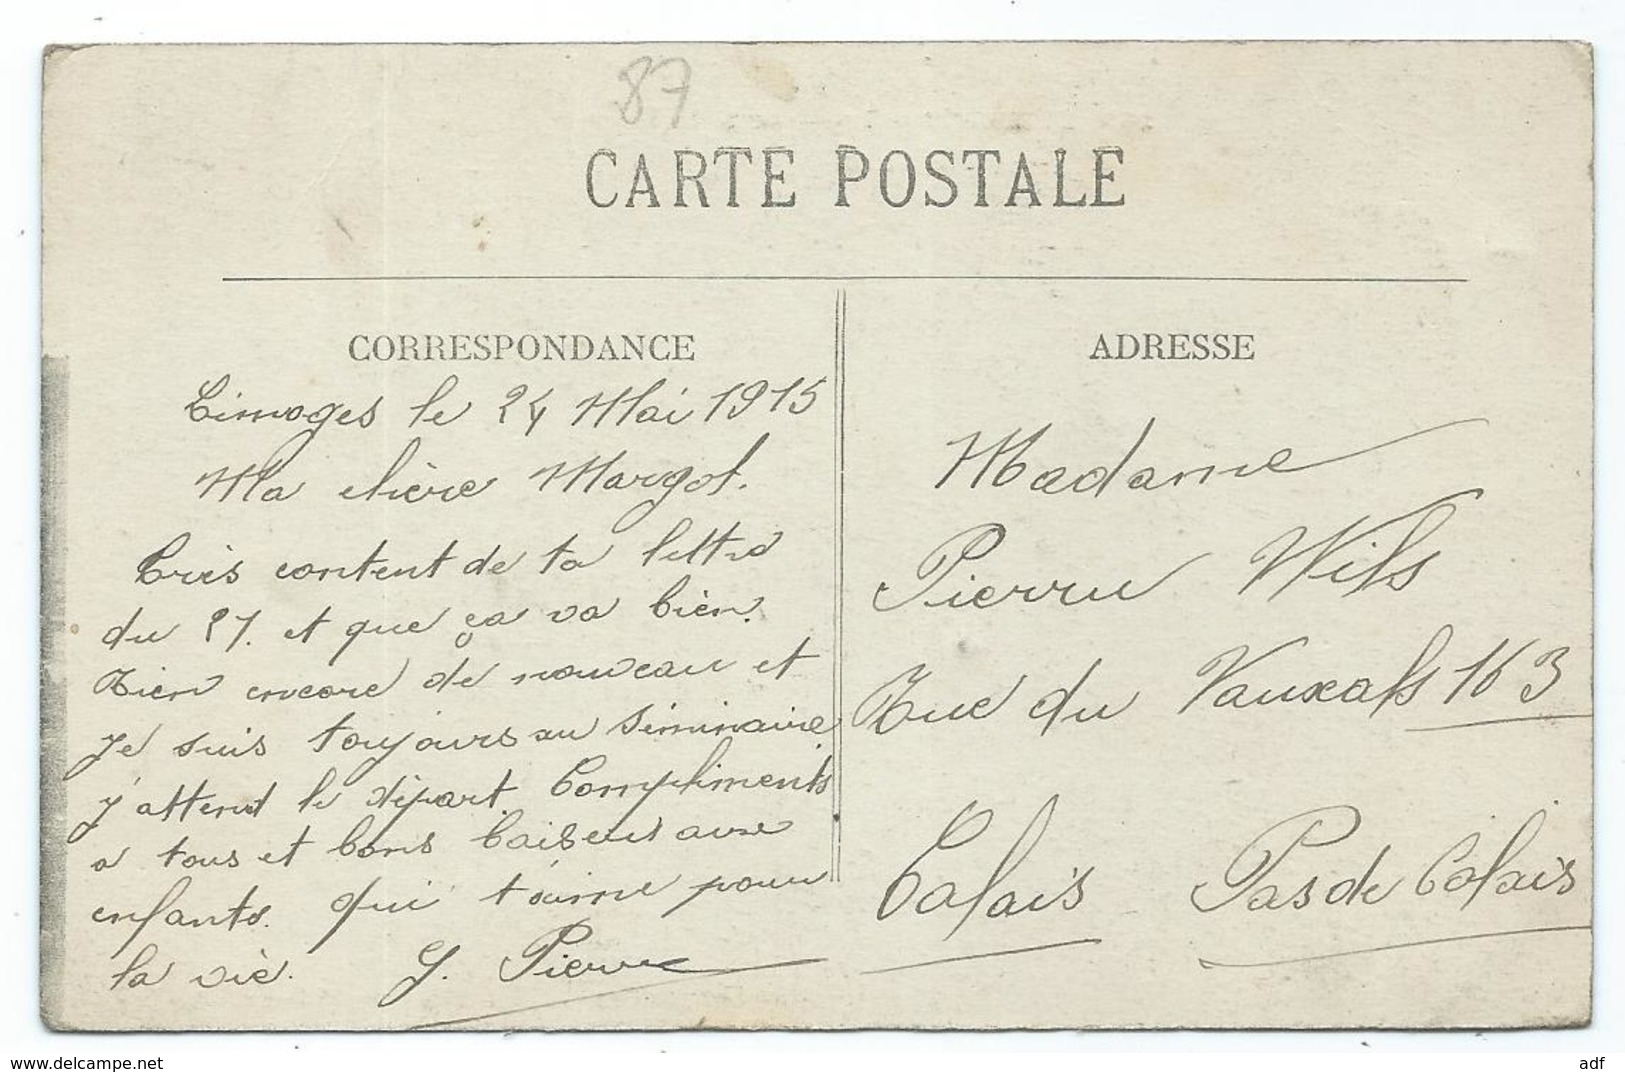 87
CARTE POSTALE
CORRESPONDANCE
Limoges le 24 Mai 1915
Ma chère Margot.
Très content de ta lettre
du 21. et que ça va bien.
Rien encore de nouveau et
je suis toujours au séminaire
j'attend le départ. Compliments
a tous et bons baisers aux
enfants. Qui t'aime pour
la vie. J. Pierre
ADRESSE
Madame
Pierre Wils
Rue du Vauxals 163
Calais Pas de Calais
www.delcampe.net
adf